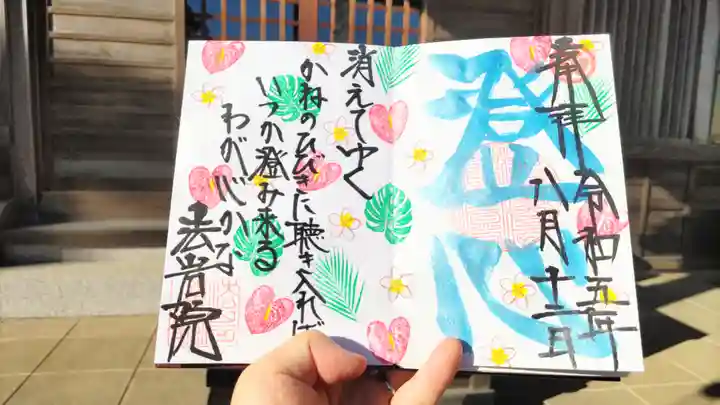 奉拝 令和五年
八月十一日
澄心
消えてゆく
かねのひびきに聴き入れば
いつか澄み来る
わが心かな
法常院